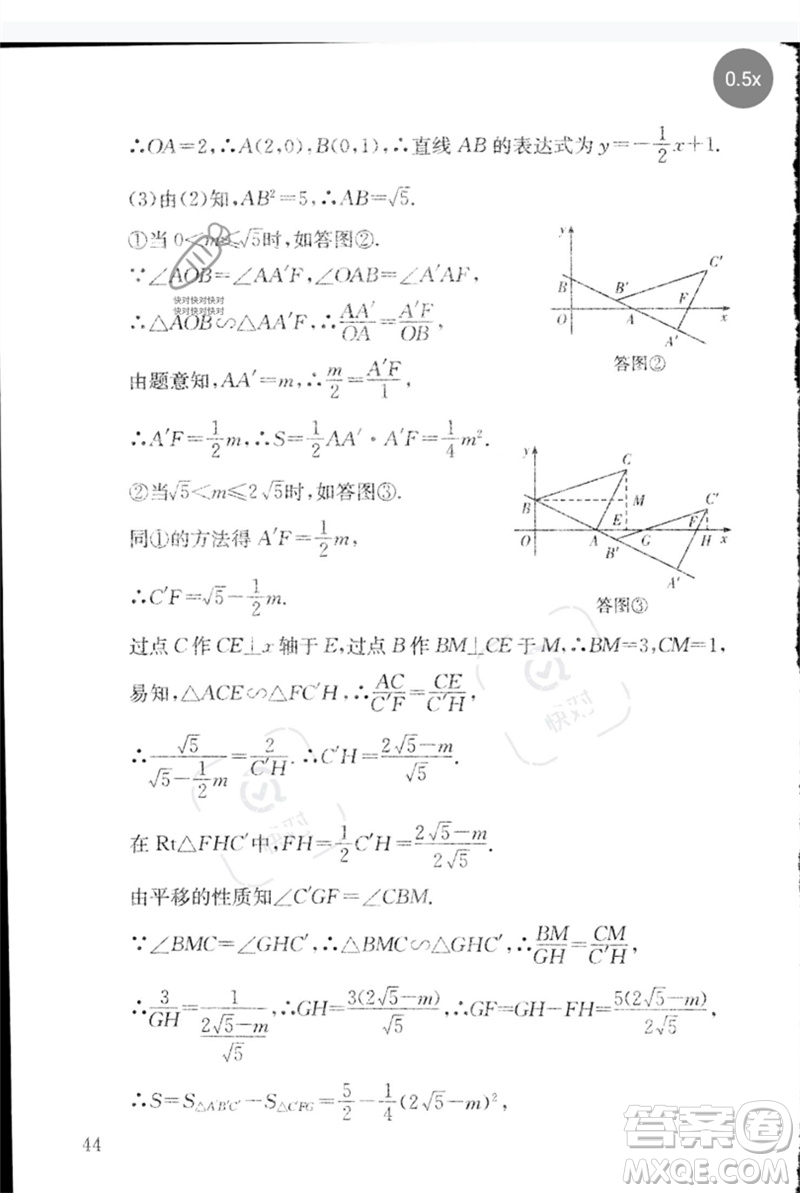 0.5x
∴OA=2,∴A(2,0),B(0,1),∴直线 AB 的表达式为 y=-\frac{1}{2}x+1.
(3)由(2)知,AB²=5,∴AB=√5.
①当 0<m≤√5时,如答图②.
∵∠AOB=∠AA′F,∠OAB=∠A′AF,
快对快对快对
快对快对快对
∴△AOB∽△AA′F,∴\frac{AA′}{OA}=\frac{A′F}{OB},
y
C′
B
B′
F
O
A
x
A′
答图②
由题意知,AA′=m,∴\frac{m}{2}=\frac{A′F}{1},
∴A′F=\frac{1}{2}m,∴S=\frac{1}{2}AA′·A′F=\frac{1}{4}m².
②当√5<m≤2√5时,如答图③.
y
C
B
M
C′
E
F
O
A
B′
G
H
x
A′
答图③
同①的方法得 A′F=\frac{1}{2}m,
∴C′F=√5-\frac{1}{2}m.
过点 C 作 CE⊥x 轴于 E,过点 B 作 BM⊥CE 于 M,∴BM=3,CM=1,
易知,△ACE∽△FC′H,∴\frac{AC}{C′F}=\frac{CE}{C′H},
快对
∴\frac{√5}{√5-\frac{1}{2}m}=\frac{2}{C′H}.∴C′H=\frac{2√5-m}{√5}.
在 Rt△FHC′中,FH=\frac{1}{2}C′H=\frac{2√5-m}{2√5}.
由平移的性质知∠C′GF=∠CBM.
∵∠BMC=∠GHC′,∴△BMC∽△GHC′,∴\frac{BM}{GH}=\frac{CM}{C′H},
∴\frac{3}{GH}=\frac{1}{\frac{2√5-m}{√5}},∴GH=\frac{3(2√5-m)}{√5},∴GF=GH-FH=\frac{5(2√5-m)}{2√5},
∴S=S_{△A′B′C′}-S_{△C′FG}=\frac{5}{2}-\frac{1}{4}(2√5-m)²,
44
答案卷
MXQE.COM